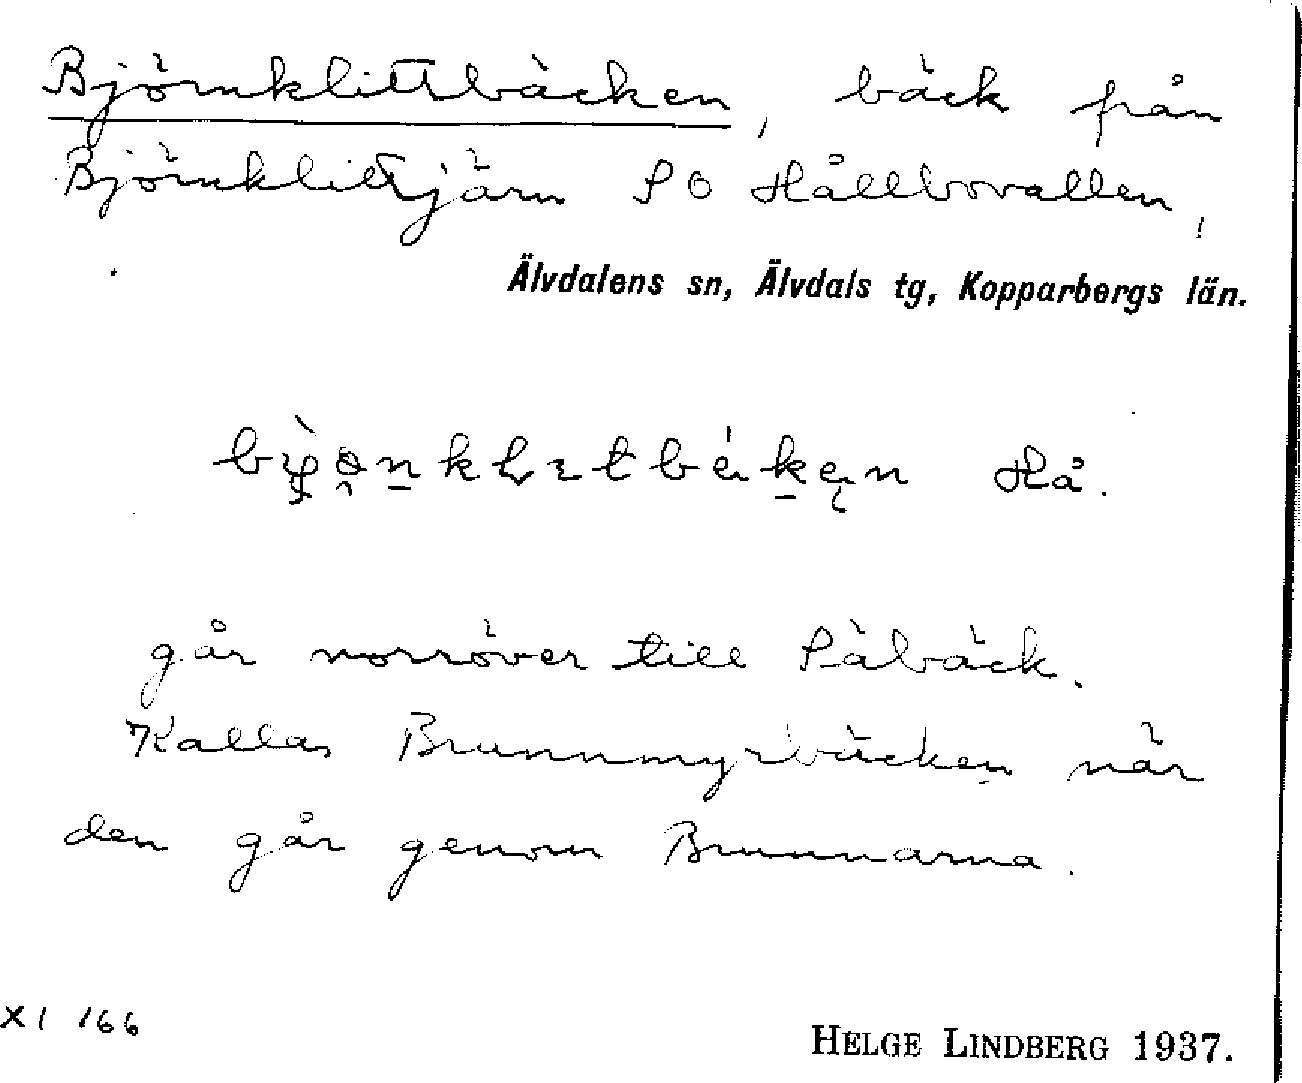 Björnklittbäcken, bäck från
Björnklittjärn SO Hållbovallen,
Älvdalens sn, Älvdals tg, Kopparbergs län.
Hå.
går norröver till Påbäck.
Kallas Brunnmyrbäcken när
den går genom Brunnarna.
XI 166
HELGE LINDBERG 1937.